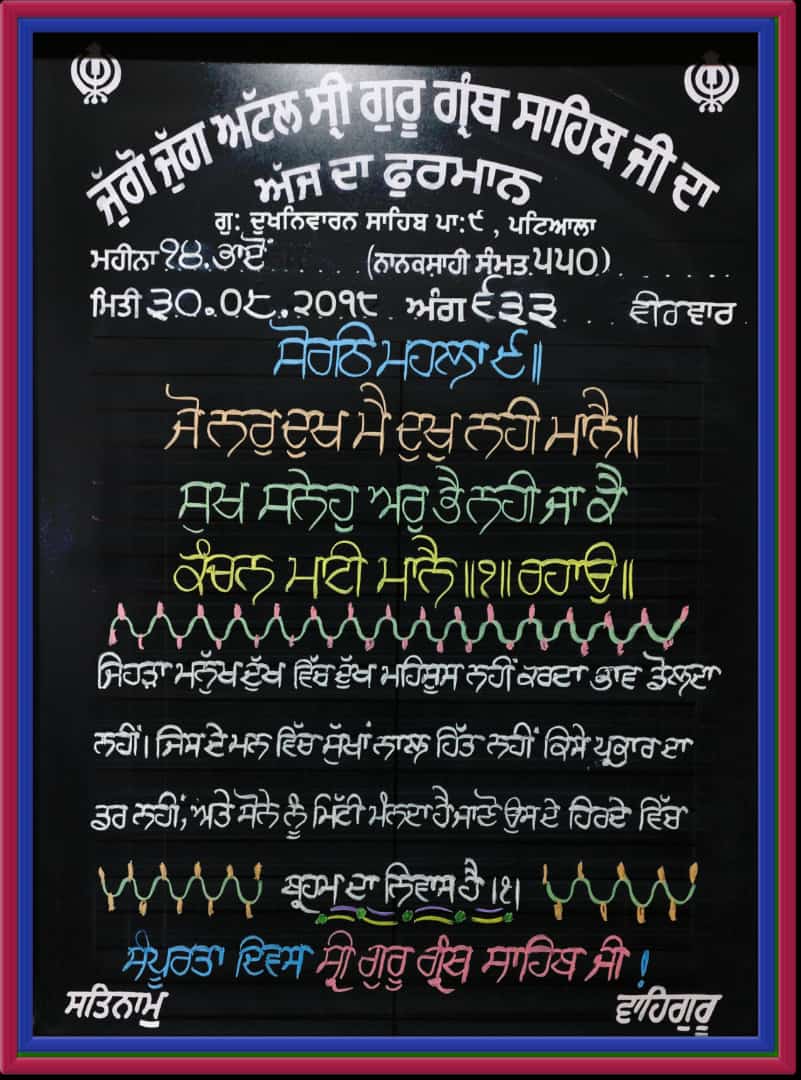 ਜੁੱਗੋ ਜੁੱਗ ਅਟੱਲ ਸ੍ਰੀ ਗੁਰੂ ਗ੍ਰੰਥ ਸਾਹਿਬ ਜੀ ਦਾ
ਅੱਜ ਦਾ ਫੁਰਮਾਨ
ਗੁ: ਦੁਖਨਿਵਾਰਨ ਸਾਹਿਬ ਪਾ:੯ , ਪਟਿਆਲਾ
ਮਹੀਨਾ ੧੪.ਭਾਦੋਂ (ਨਾਨਕਸਾਹੀ ਸੰਮਤ.੫੫੦)
ਮਿਤੀ ੩੦.੦੮.੨੦੧੮ ਅੰਗ ੬੩੩ ਵੀਰਵਾਰ
ਸੋਰਠਿ ਮਹਲਾ ੯॥
ਜੋ ਨਰੁ ਦੁਖ ਮੈ ਦੁਖੁ ਨਹੀ ਮਾਨੈ॥
ਸੁਖ ਸਨੇਹੁ ਅਰੁ ਭੈ ਨਹੀ ਜਾ ਕੈ
ਕੰਚਨ ਮਾਟੀ ਮਾਨੈ॥੧॥ ਰਹਾਉ॥
ਜਿਹੜਾ ਮਨੁੱਖ ਦੁੱਖ ਵਿੱਚ ਦੁੱਖ ਮਹਿਸੂਸ ਨਹੀਂ ਕਰਦਾ ਭਾਵ ਡੋਲਦਾ
ਨਹੀਂ। ਜਿਸ ਦੇ ਮਨ ਵਿੱਚ ਸੁੱਖਾਂ ਨਾਲ ਹਿੱਤ ਨਹੀਂ ਕਿਸੇ ਪ੍ਰਕਾਰ ਦਾ
ਡਰ ਨਹੀਂ, ਅਤੇ ਸੋਨੇ ਨੂੰ ਮਿੱਟੀ ਮੰਨਦਾ ਹੈ ਜਾਣੋ ਉਸ ਦੇ ਹਿਰਦੇ ਵਿੱਚ
ਬ੍ਰਹਮ ਦਾ ਨਿਵਾਸ ਹੈ।੧।
ਸੰਪੂਰਤਾ ਦਿਵਸ ਸ੍ਰੀ ਗੁਰੂ ਗ੍ਰੰਥ ਸਾਹਿਬ ਜੀ !
ਸਤਿਨਾਮੁ ਵਾਹਿਗੁਰੂ